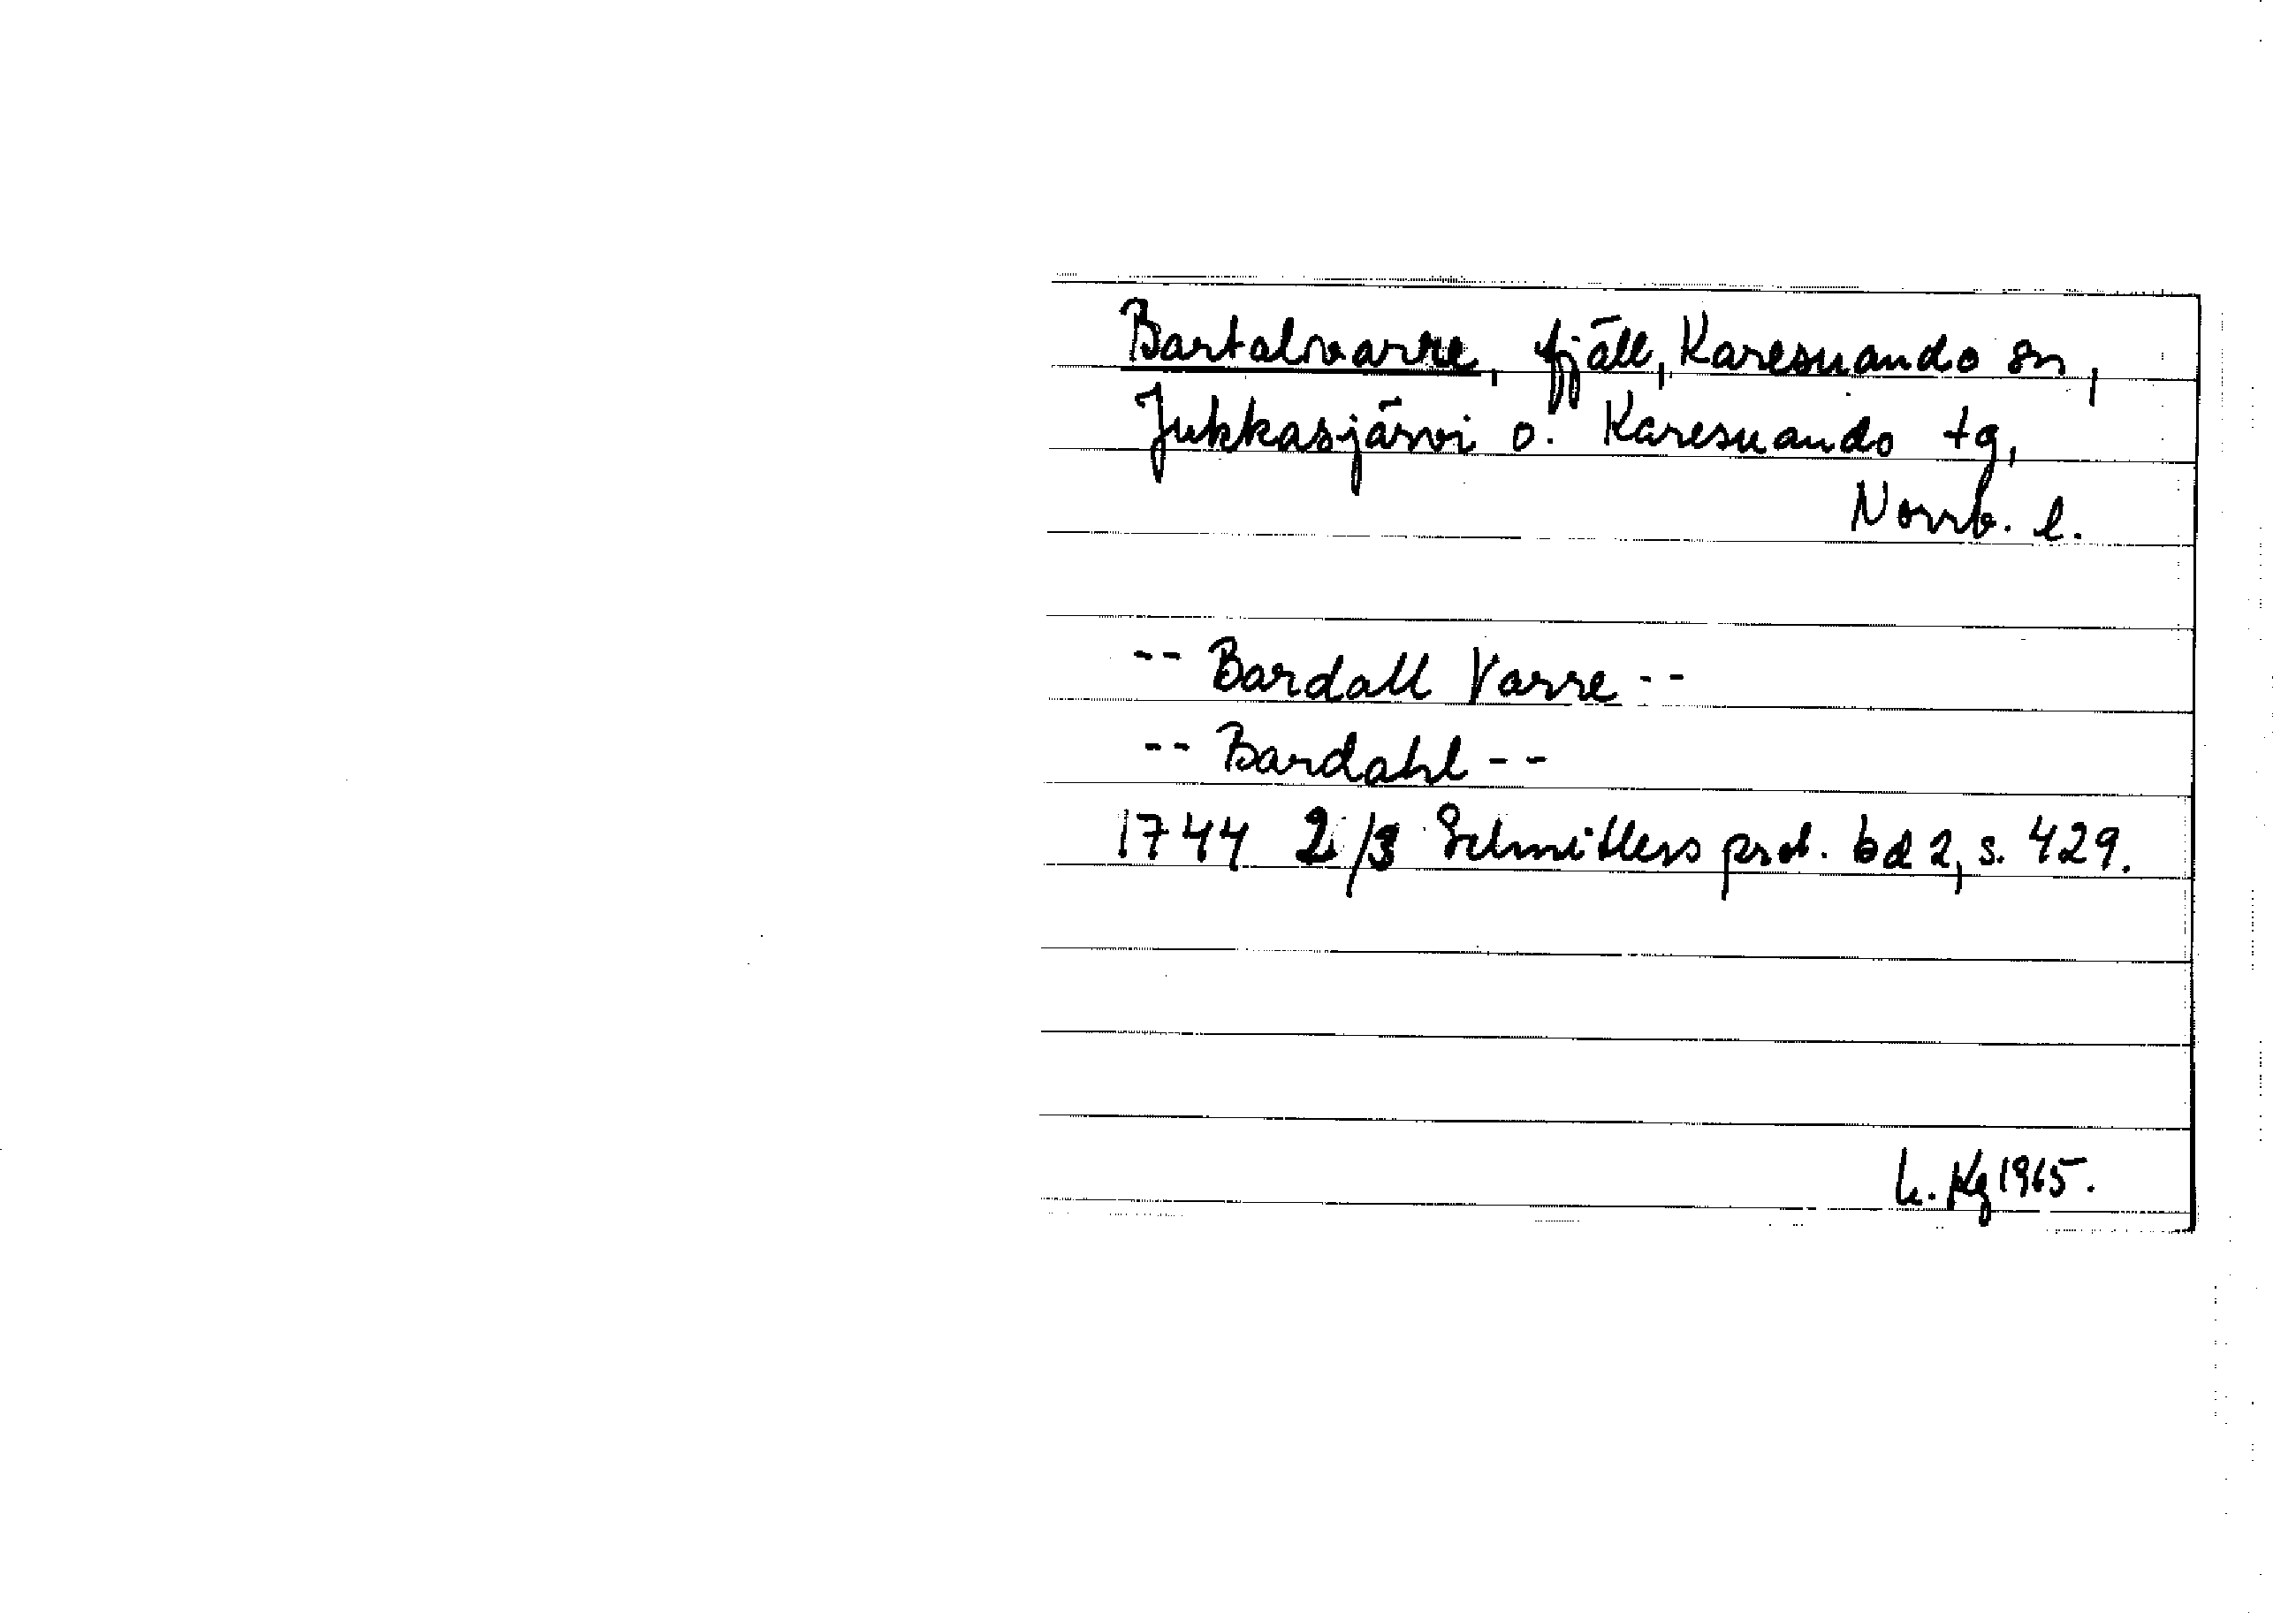 Bartalvarre, fjäll, Karesuando sn,
Jukkasjärvi o. Karesuando tg,
Norrb. l.
-- Bardall Varre --
-- Bardahl --
1744 2/3 Schnitlers prot. bd 2, s. 429.
L. Kg 1965.